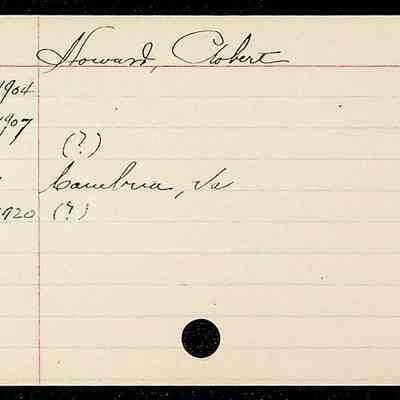 Howard, Robert
1904
1907
(?)
Cambria, Va
1920 (?)